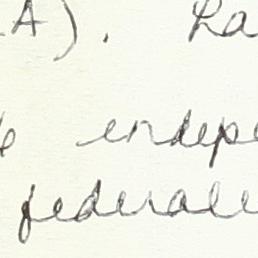 A). La
indepe
federale